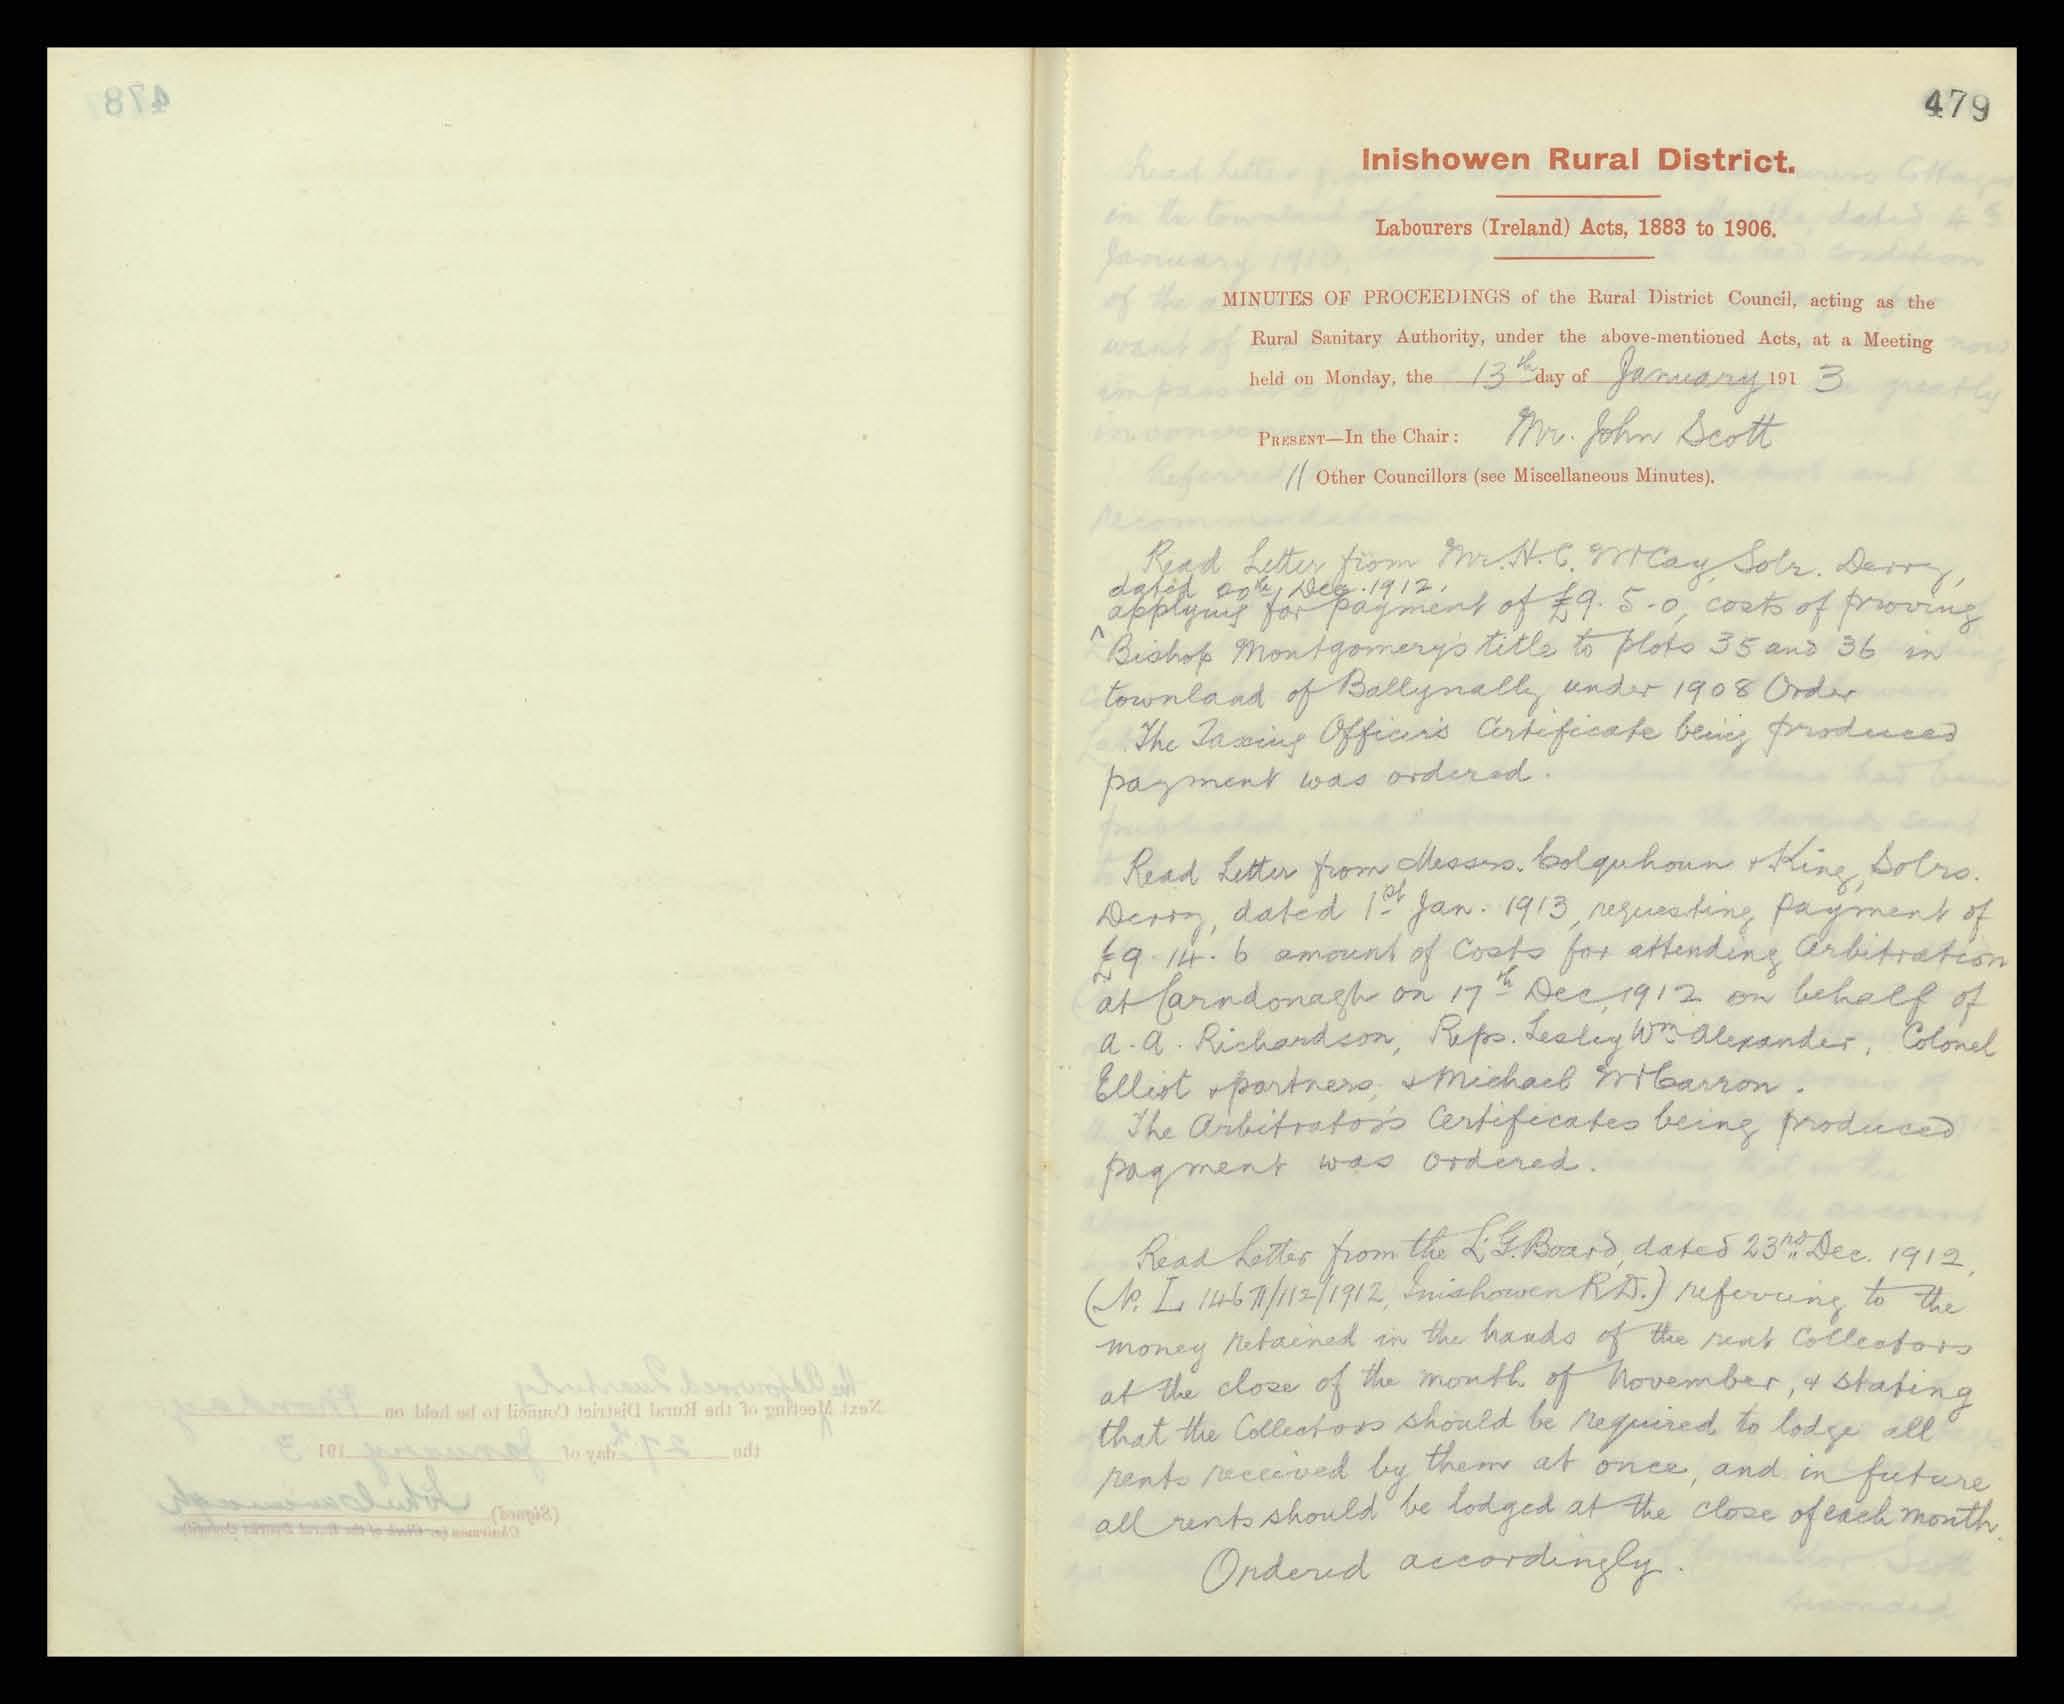 479
Inishowen Rural District.
Labourers (Ireland) Acts, 1883 to 1906.
MINUTES OF PROCEEDINGS of the Rural District Council, acting as the
Rural Sanitary Authority, under the above-mentioned Acts, at a Meeting
held on Monday, the 13th day of January 1913
PRESENT—In the Chair: Mr. John Scott
11 Other Councillors (see Miscellaneous Minutes).
Read Letter from Mr. H. C. McCay, Solr. Derry,
dated Dec. 1912,
applying for payment of £9. 5. 0, costs of proving
Bishop Montgomery's title to plots 35 and 36 in
townland of Ballynally under 1908 Order
The Taxing Officer's Certificate being produced
payment was ordered.
Read Letter from Messrs. Colquhoun & King, Solrs.
Derry, dated 1st Jan. 1913, requesting payment of
£9. 14. 6 amount of Costs for attending Arbitration
at Carndonagh on 17th Dec, 1912 on behalf of
A. A. Richardson, Reps. Lesley Wm Alexander, Colonel
Elliot & partners, & Michael McCarron.
The Arbitrator's Certificates being produced
payment was ordered.
Read Letter from the L. G. Board, dated 23rd Dec. 1912,
(No. L Inishowen R.D.) referring to the
money retained in the hands of the rent Collectors
at the close of the month of November, & stating
that the Collectors should be required to lodge all
rents received by them at once, and in future
all rents should be lodged at the close of each month.
Ordered accordingly.